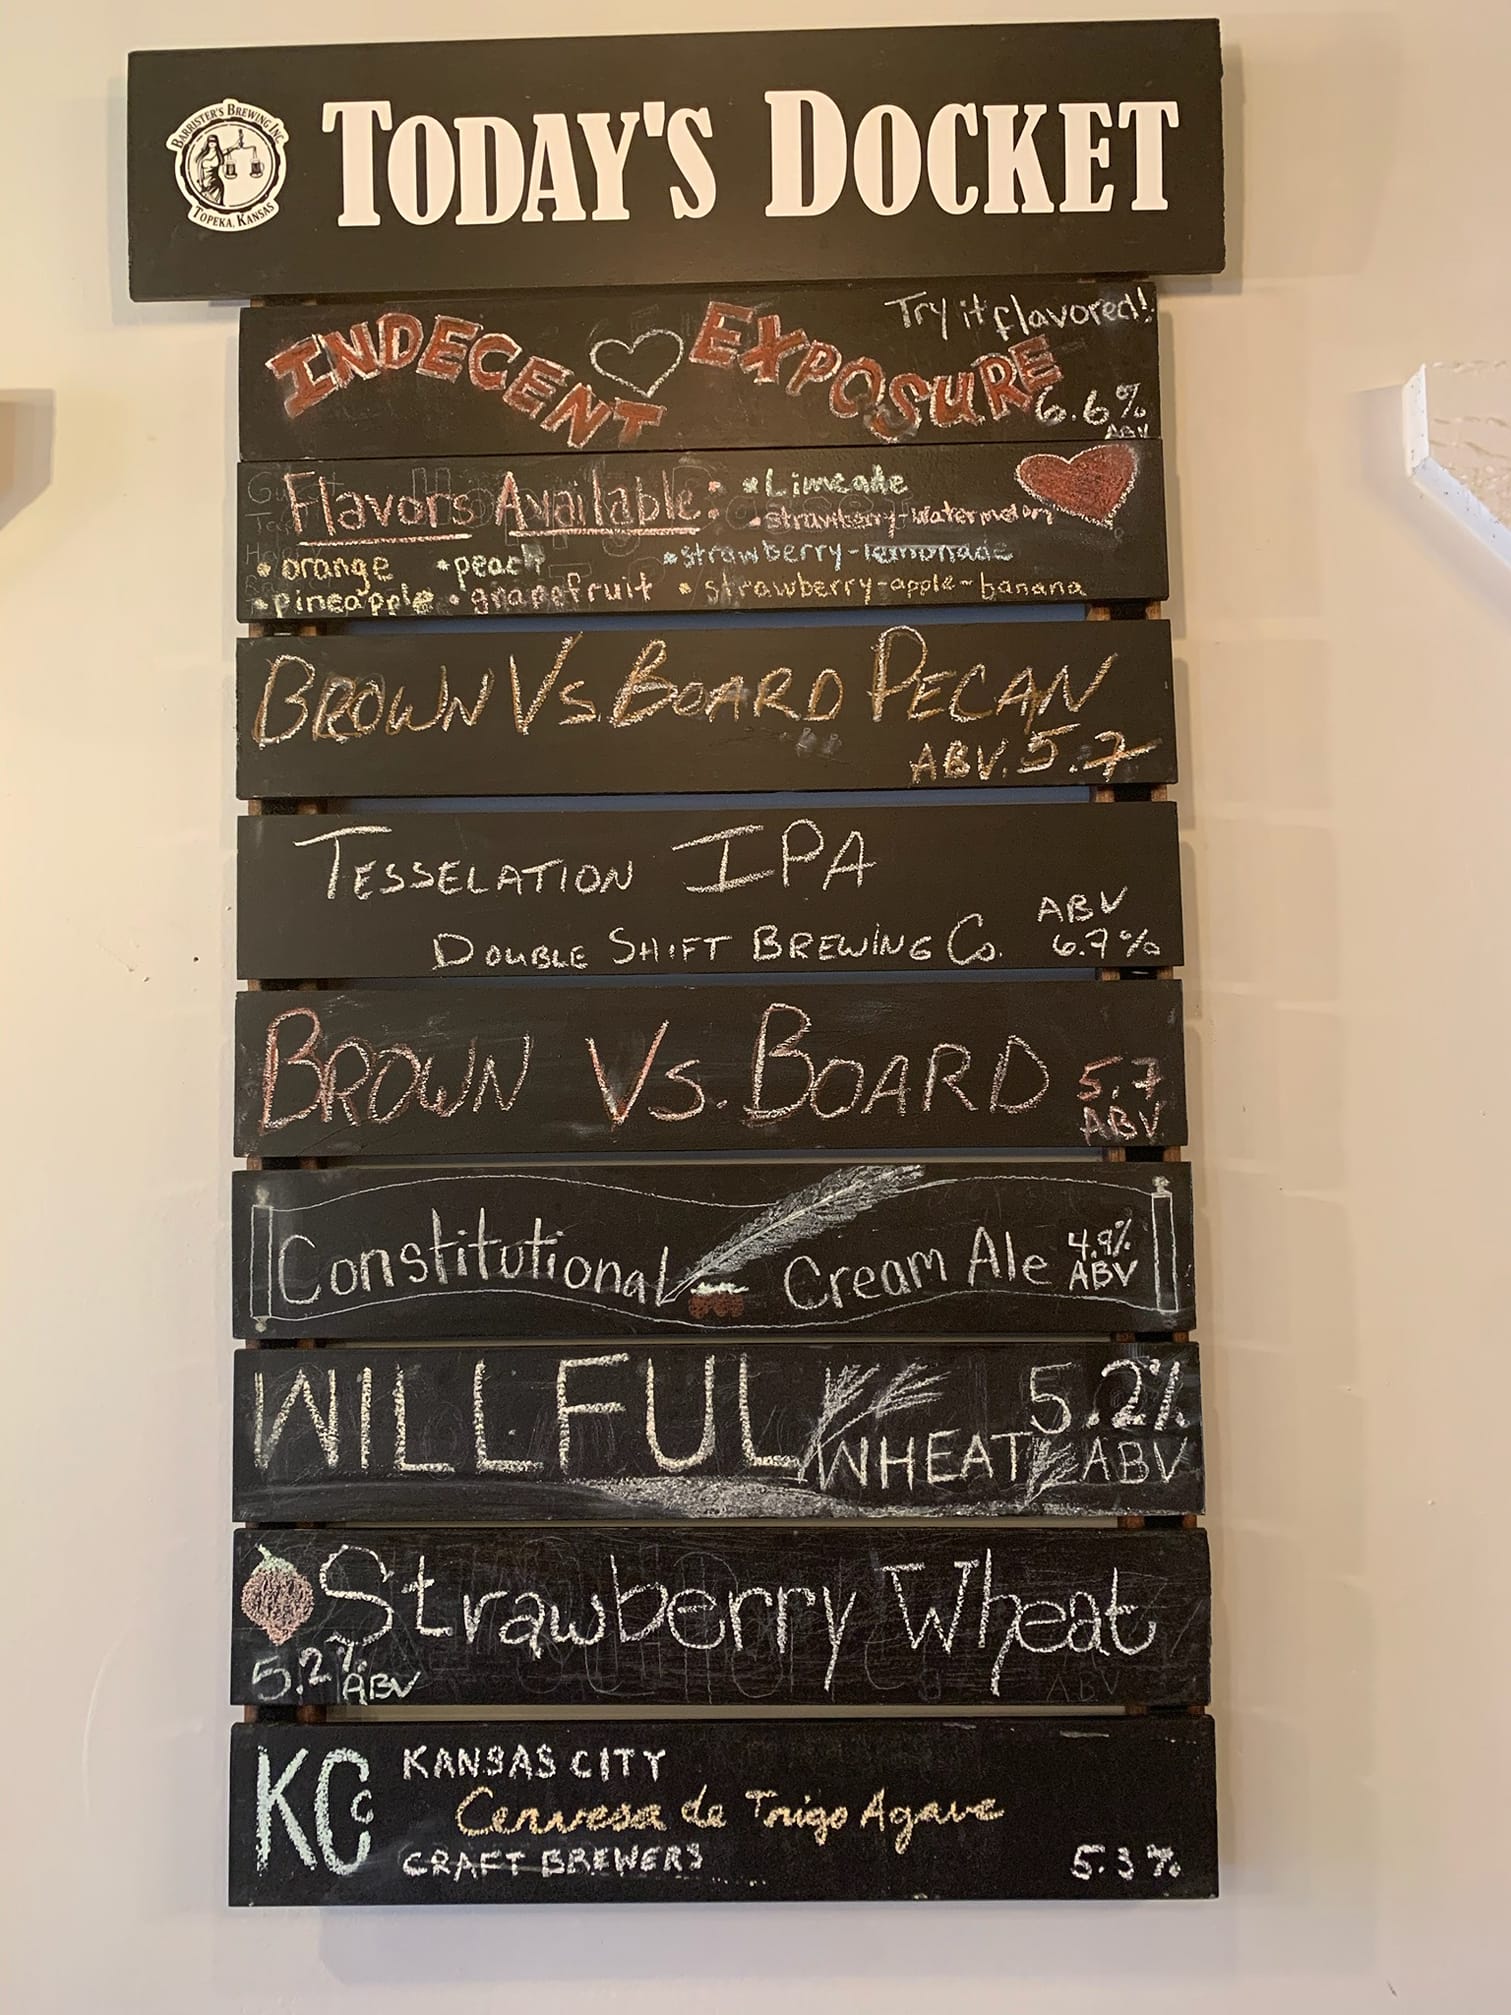 BARRISTER'S BREWING INC
TOPEKA, KANSAS
TODAY'S DOCKET
Try it flavored!
INDECENT EXPOSURE
6.6%
ABV
Flavors Available:
• Limeade
• strawberry-watermelon
• orange • peach • strawberry-lemonade
• pineapple • grapefruit • strawberry-apple-banana
BROWN VS. BOARD PECAN
ABV. 5.7
TESSELATION IPA
ABV
DOUBLE SHIFT BREWING CO. 6.7%
BROWN VS. BOARD 5.7
ABV
Constitutional Cream Ale 4.9%
ABV
WILLFUL 5.2%
WHEAT ABV
Strawberry Wheat
5.2%
ABV
KC
KANSAS CITY
Cervesa de Trigo Agave
CRAFT BREWERS 5.3%